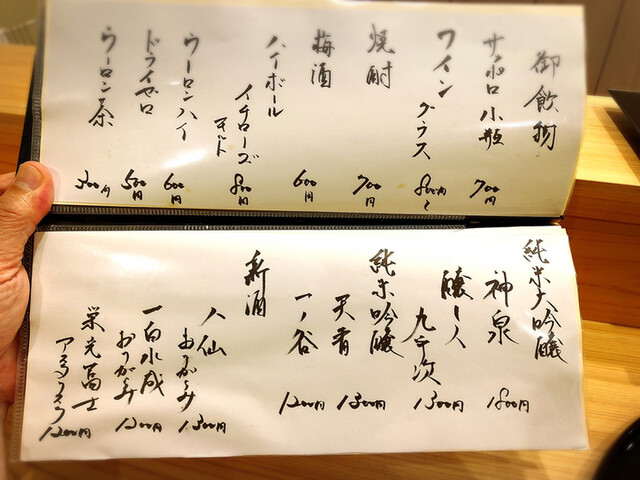 御飲物
サッポロ小瓶 700円
ワイン グラス 800円〜
焼酎 700円
梅酒 600円
ハイボール イチローズモルト 800円
ウーロンハイ 600円
ドライゼロ 500円
ウーロン茶 300円
純米大吟醸
神泉 1800円
醸し人九平次 1300円
純米吟醸
天青 1300円
一ノ谷 1200円
新酒
八仙 おりがらみ 1300円
一白水成 おりがらみ 1200円
栄光冨士 1200円